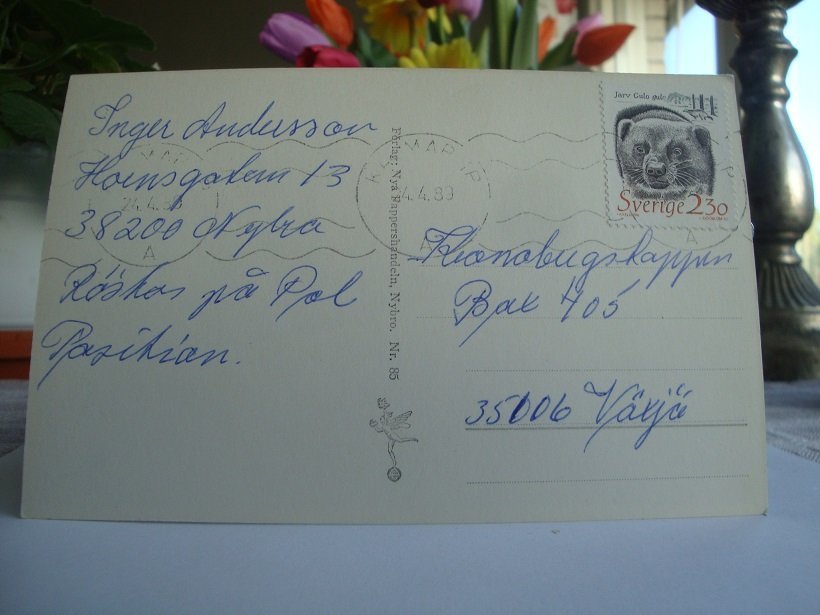 Inger Andersson
Hornsgatan 13
38200 Nybro
Röstar på Pol
Position.
Förlag: Nya Pappershandeln, Nybro. Nr. 85
KALMAR
24.4.89
A
Järv Gulo gulo
Sverige 230
Kronobergskoppen
Box 405
35006 Växjö